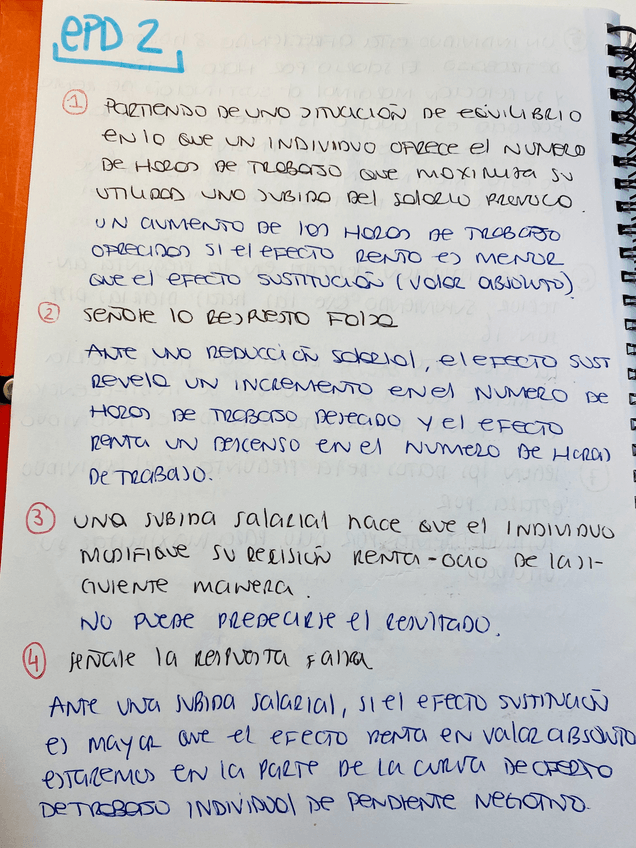 EPD 2
① PARTIENDO DE UNA SITUACIÓN DE EQUILIBRIO
EN LA QUE UN INDIVIDUO OFRECE EL NUMERO
DE HORAS DE TRABAJO QUE MAXIMIZA SU
UTILIDAD UNA SUBIDA DEL SALARIO PROVOCA.
UN AUMENTO DE LAS HORAS DE TRABAJO
OFRECIDAS SI EL EFECTO RENTA ES MENOR
QUE EL EFECTO SUSTITUCIÓN (VALOR ABSOLUTO).
② SEÑALE LA RESPUESTA FALSA
ANTE UNA REDUCCIÓN SALARIAL, EL EFECTO SUST
REVELA UN INCREMENTO EN EL NUMERO DE
HORAS DE TRABAJO DESEADO Y EL EFECTO
RENTA UN DESCENSO EN EL NUMERO DE HORAS
DE TRABAJO.
③ UNA SUBIDA SALARIAL HACE QUE EL INDIVIDUO
MODIFIQUE SU DECISIÓN RENTA-OCIO DE LA SI-
GUIENTE MANERA.
NO PUEDE PREDECIRSE EL RESULTADO.
④ SEÑALE LA RESPUESTA FALSA
ANTE UNA SUBIDA SALARIAL, SI EL EFECTO SUSTITUCIÓN
ES MAYOR QUE EL EFECTO RENTA EN VALOR ABSOLUTO
ESTAREMOS EN LA PARTE DE LA CURVA DE OFERTA
DE TRABAJO INDIVIDUAL DE PENDIENTE NEGATIVO.